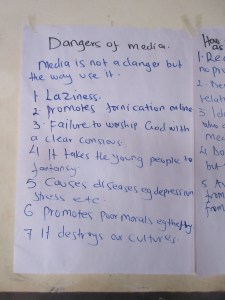 Dangers of media.
Media is not a danger but
the way use it.
1 Laziness.
2 Promotes fornication online
3 Failure to worship God with
a clear conscious
4 It takes the young people to
fantancy
5 Causes diseases eg depression
stress etc.
6 promotes poor morals eg theft
7 It destroys our cultures
How
as
1. Re
no pr
2.
relat
3.
who
med
4.
but
5.
from
from